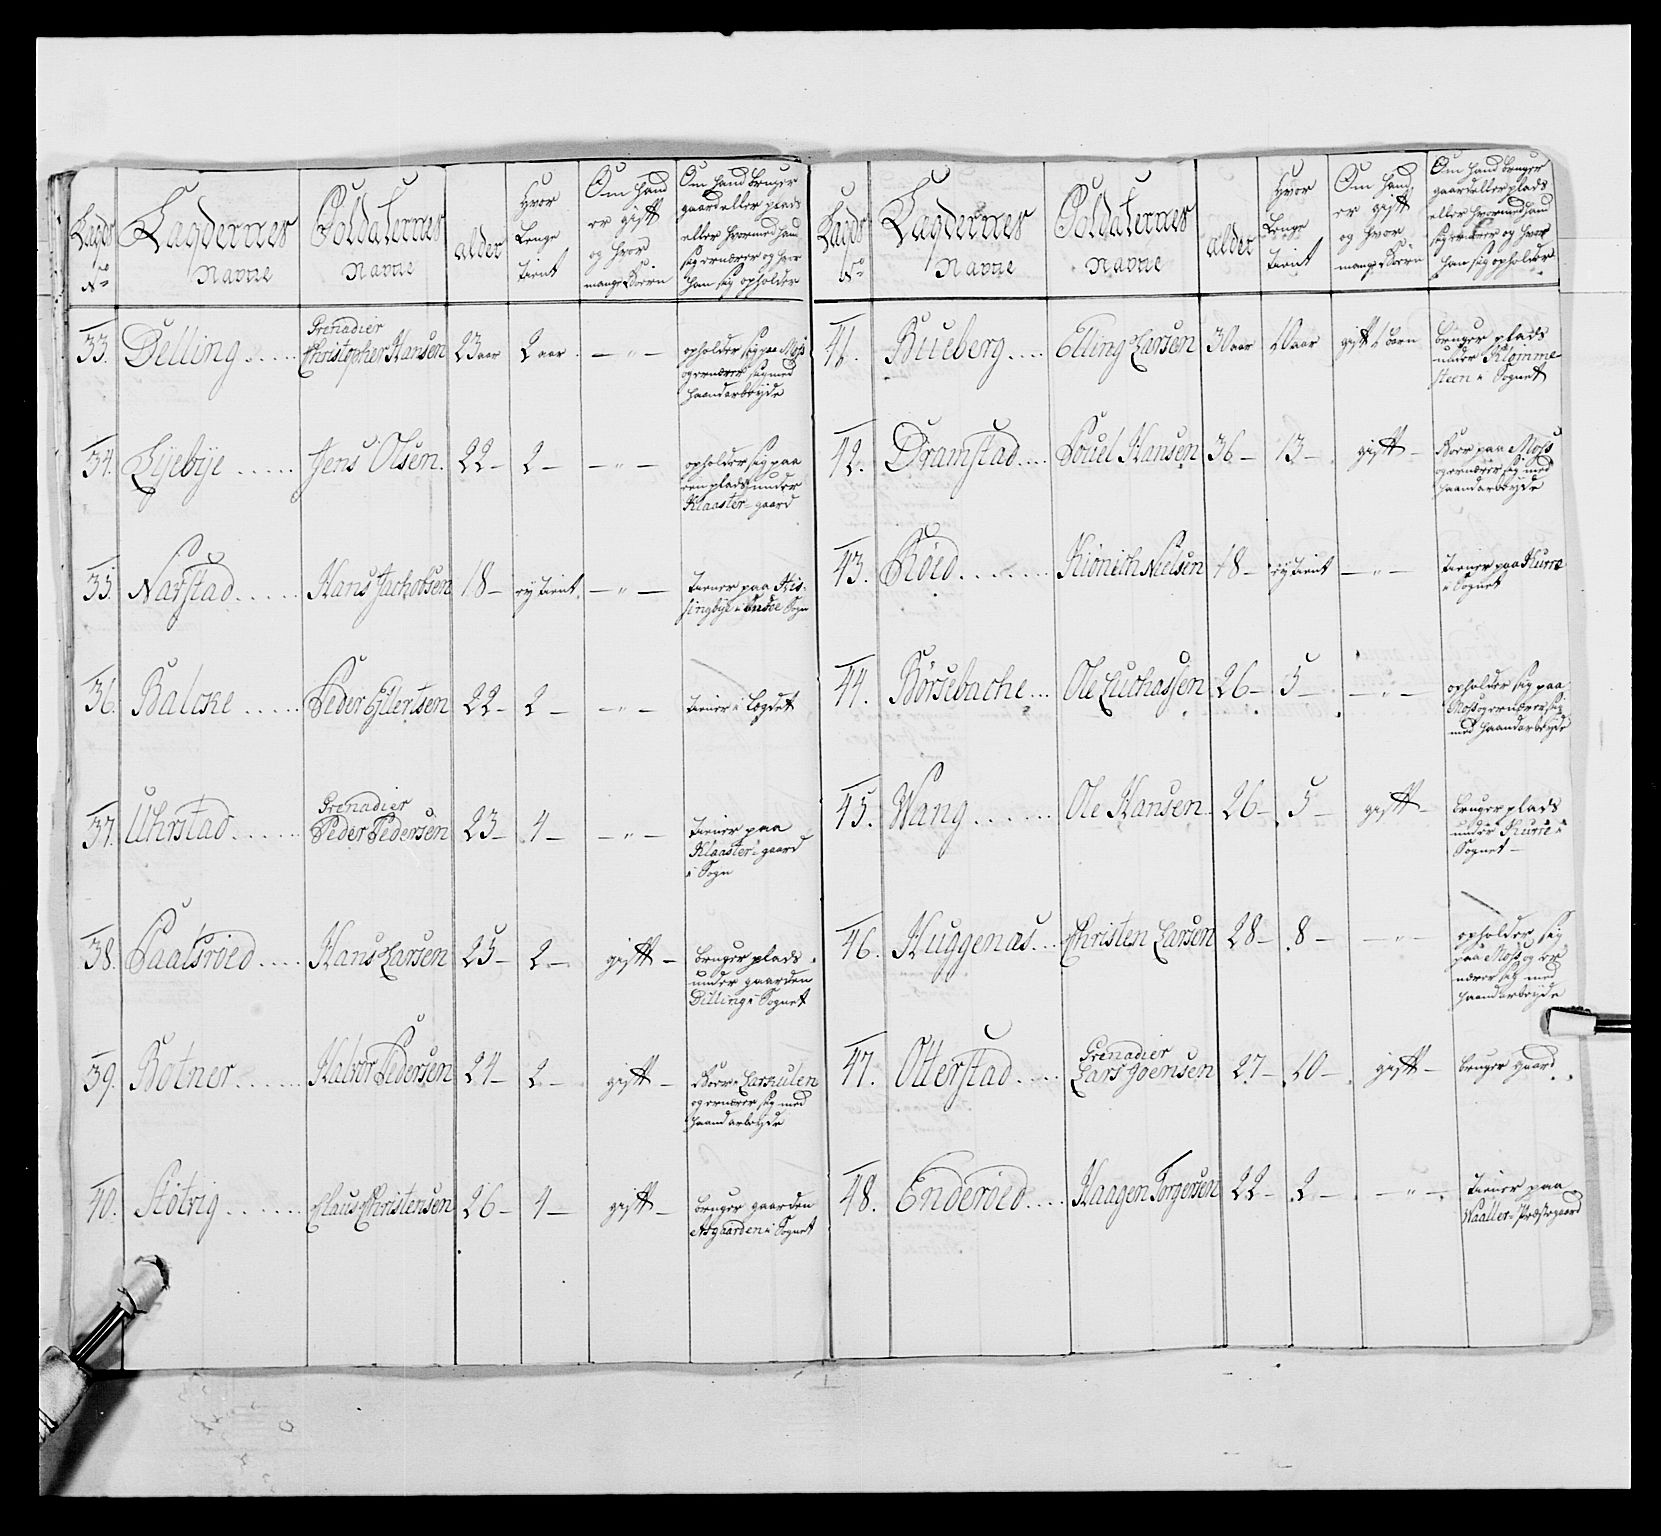 Lægds No
Lægdernes Navne
Soldaternes Navne
alder
Hvor Lenge tient
Om hand er gift og hvor mange Børn
Om hand bruger gaard eller plads eller hvormed hand sig ernærer og hvor han sig opholder
33. Delling..... Grenadier Christopher Hansen 23 aar 2 aar. — " —
opholder sig paa Moss
og ernærer sig med
haandarbeyde
34. Lyebye ..... Jens Olsen. 22 — 2 — — " —
opholder sig paa
een plads under
Klaaster-gaard
35. Narstad..... Hans Jachobsen 18 — ey tient. — " —
tiener paa
Sogn
36. Balche ..... Peder Ellertsen 22 — 2 — — " —
tiener i Lægdet
37. Uhrstad..... Grenadier Peder Pedersen 23 — 4 — — " —
tiener paa
Klaaster-gaard
i Sogn
38. Paalsrøed.... Hans Larsen 25 — 2 — gift —
bruger plads
under gaarden
Dilling i Sognet
39. Botner..... Halvor Pedersen 24 — 2 — gift —
Boer i Larkulen
og ernærer sig med
haandarbeyde
40. Støtvig ..... Claus Christensen 26 — 4 — gift —
bruger gaarden
i Sognet
Lægds No
Lægdernes Navne
Soldaternes Navne
alder
Hvor Lenge tient
Om hand er gift og hvor mange Børn
Om hand bruger gaard eller plads eller hvormed hand sig ernærer og hvor han sig opholder
41. Bueberg.... Elling Larsen 30 aar 10 aar gift 1 barn
bruger plads
under Klomme-
steen i Sognet
42. Dramstad.... Pouel Hansen 36 — 13 — gift —
Boer paa Moss
og ernærer sig med
haandarbeyde
43. Røed....... Nielsen 18 — ey tient — " —
tiener paa Kurre
i Sognet
44. Børsebache... Ole Luchassen 26 — 5 — — " —
opholder sig paa
Moss og ernærer sig
med haandarbeyde
45. Wang....... Ole Hansen. 26 — 5 — gift —
bruger plads
under Kurre i
Sognet —
46. Huggenæs... Christen Larsen 28 — 8 — — " —
opholder sig
paa Moss og er
nærer sig med
haandarbeyde
47. Otterstad.... Grenadier Lars Joensen 27 — 10 — gift —
bruger gaard
48. Enderøed.... Haagen Torgersen 22 — 2 — — " —
tiener paa
Waaller-Præstegaard